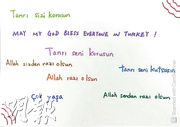 Tanrı sizi korusun
MAY MY GOD BLESS EVERYONE IN TURKEY !
Tanrı seni korusun
Allah sizden razı olsun
tanrı seni kutsasın
Allah razı olsun
Çok yaşa
Allah senden razı olsun